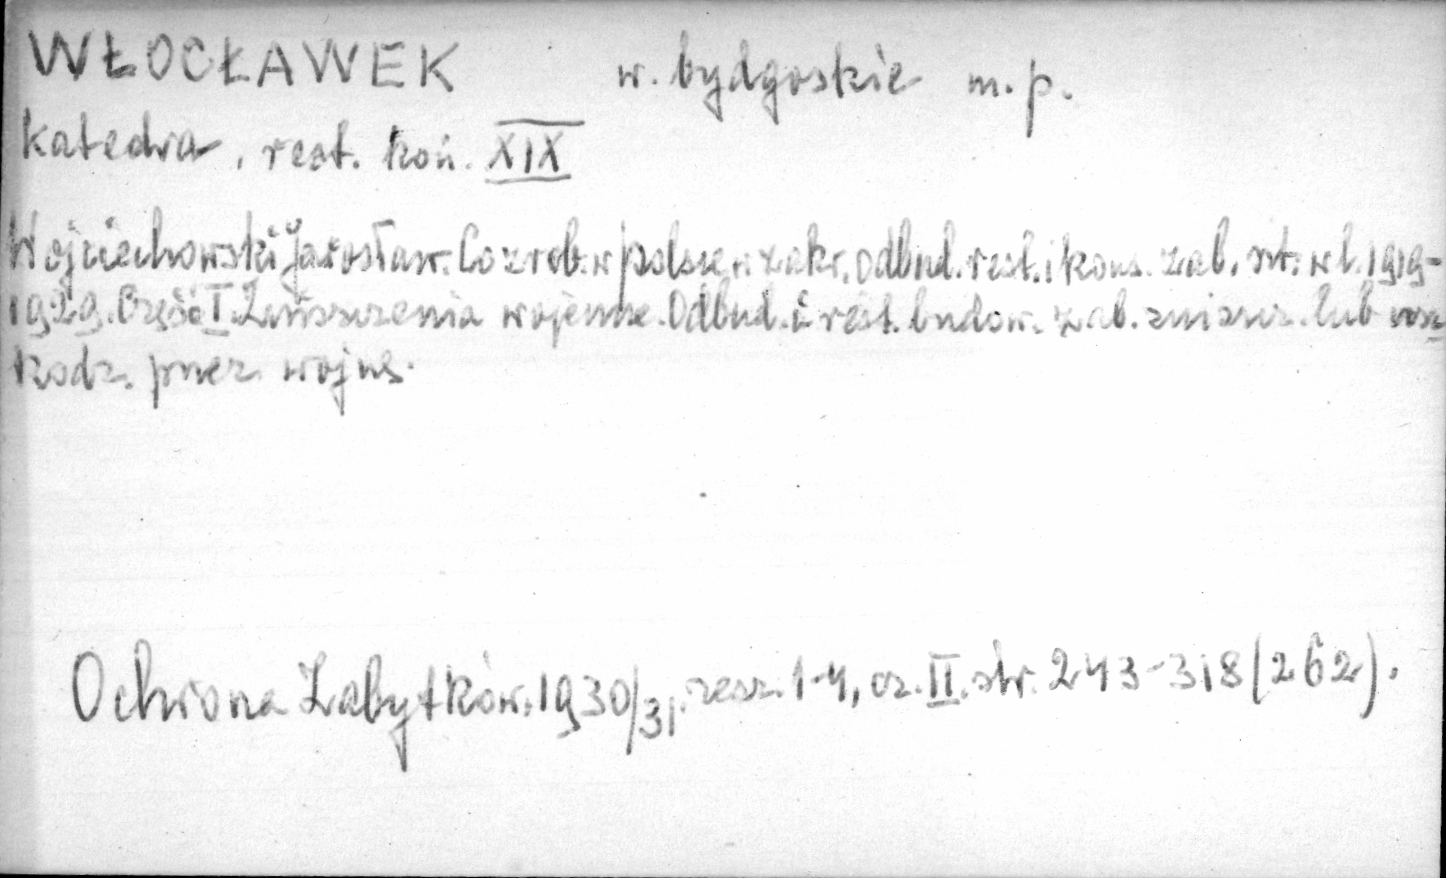 WŁOCŁAWEK w. bydgoskie m. p.
katedra, rest. koń. XIX
Wojciechowski Jarosław. Co zrob. w Polsce w zakr. odbud. rest. i kons. zab. szt. w l. 1919-
1929. Część I. Zniszczenia wojenne. Odbud. i rest. budow. zab. zniszcz. lub usz
kodz. przez wojnę.
Ochrona Zabytków. 1930/31. zesz. 1-4, cz. II. str. 243-318 (262).